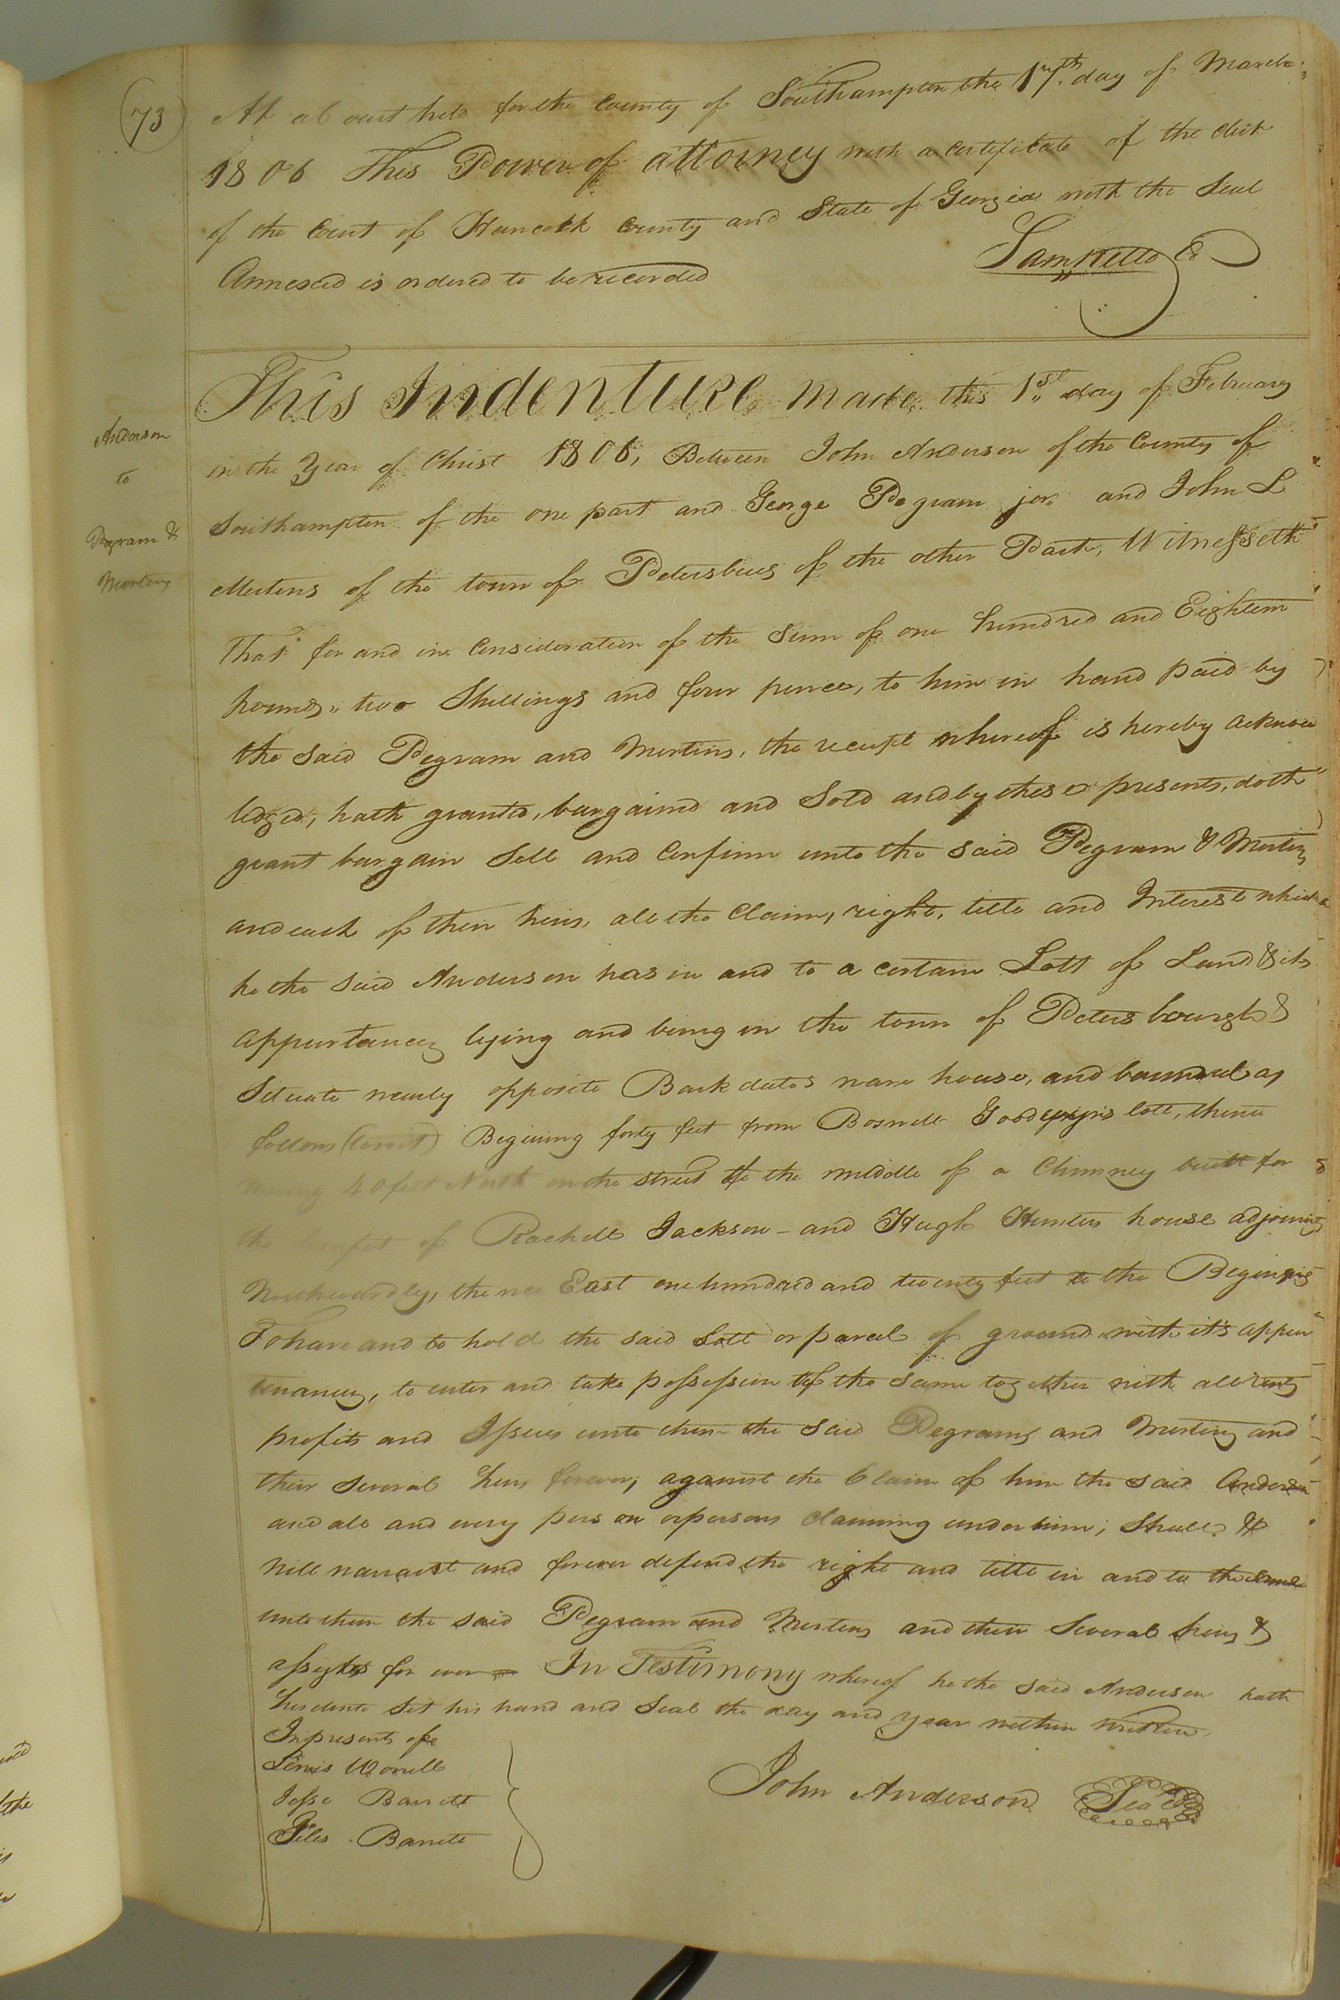 73
At a Court held for the County of Southampton the 17th. day of March
1806 This Power of attorney with a certificate of the Clerk
of the Court of Hancock County and State of Georgia with the Seal
Annexed is ordered to be recorded
Saml Kello Cl
This Indenture made this 1st day of February
in the Year of Christ 1806, Between John Anderson of the County of
Southampton of the one part and George Pegram jor. and John L
Mertens of the town of Petersburg of the other Part, Witnesseth
That for and in Consideration of the Sum of one hundred and Eighteen
Pounds, two Shillings and four pence, to him in hand paid by
the said Pegram and Mertins, the receipt whereof is hereby acknow
ledged, hath granted, bargained and Sold and by these presents, doth
grant bargain Sell and Confirm unto the said Pegram & Mertins
and each of their heirs, all the Claim, right, title and Interest which
he the said Anderson has in and to a certain Lott of Land & its
appurtances lying and being in the town of Petersbourgh &
Situate nearly opposite Barkdates ware house, and bounded as
follows (towit) Begining forty feet from Boswell Goodwyns lott, thence
runing 40 feet North on the street to the middle of a Chimney built for
the benefit of Rachell Jackson - and Hugh Hunters house adjoining
Northwardly, thence East one hundred and twenty feet to the Begining
To have and to hold the said Lott or parcel of ground with it's appur
tenances, to enter and take possession of the same together with all rents
profits and Issues unto them the said Pegram and Mertins and
their several heirs forever, against the Claim of him the said Anderson
and all and every person or persons claiming under him, Shall &
will warrant and forever defend the right and title in and to the same
unto them the said Pegram and Mertens and their Several heirs &
assigns for ever — In Testimony whereof he the said Anderson hath
hereunto Set his hand and Seal the day and year within written.
In presents of
Lewis Worrell
Jesse Barrett
Giles Barrett
John Anderson Seal
Anderson
to
Pegram &
Mertens